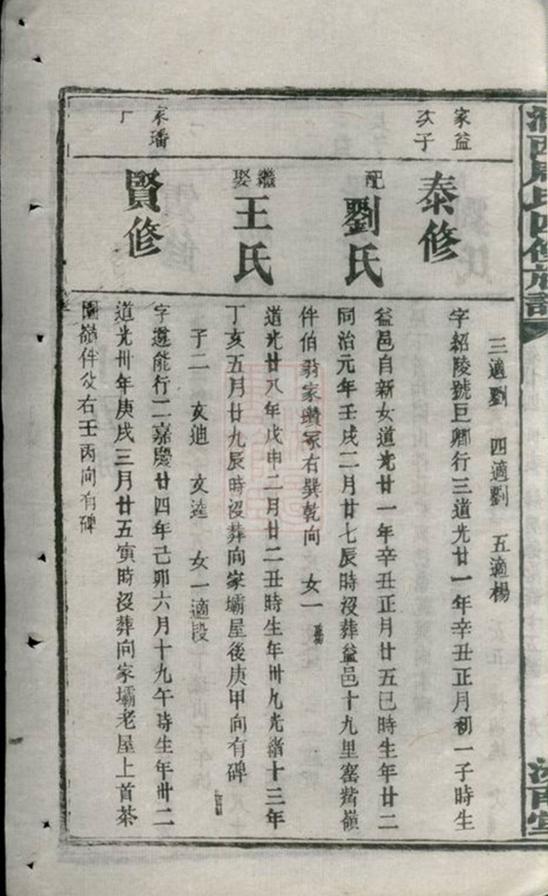 家益
次子
泰修
三適劉 四適劉 五適楊
字紹陵號巨卿行三道光廿一年辛丑正月初一子時生
配
劉氏
益邑自新女道光廿一年辛丑正月廿五巳時生年廿二
同治元年壬戌二月廿七辰時沒葬益邑十九里窑觜嶺
伴伯翁家瓚冢右巽乾向 女一
繼娶
王氏
道光廿八年戊申二月廿二丑時生年卅九光緒十三年
丁亥五月廿九辰時沒葬向家壩屋後庚甲向有碑
子二 亥迪 亥逵 女一適段
家璠
賢修
字遵能行二嘉慶廿四年己卯六月十九午時生年卅二
道光卅年庚戌三月廿五寅時沒葬向家壩老屋上首茶
園嶺伴父右壬丙向有碑